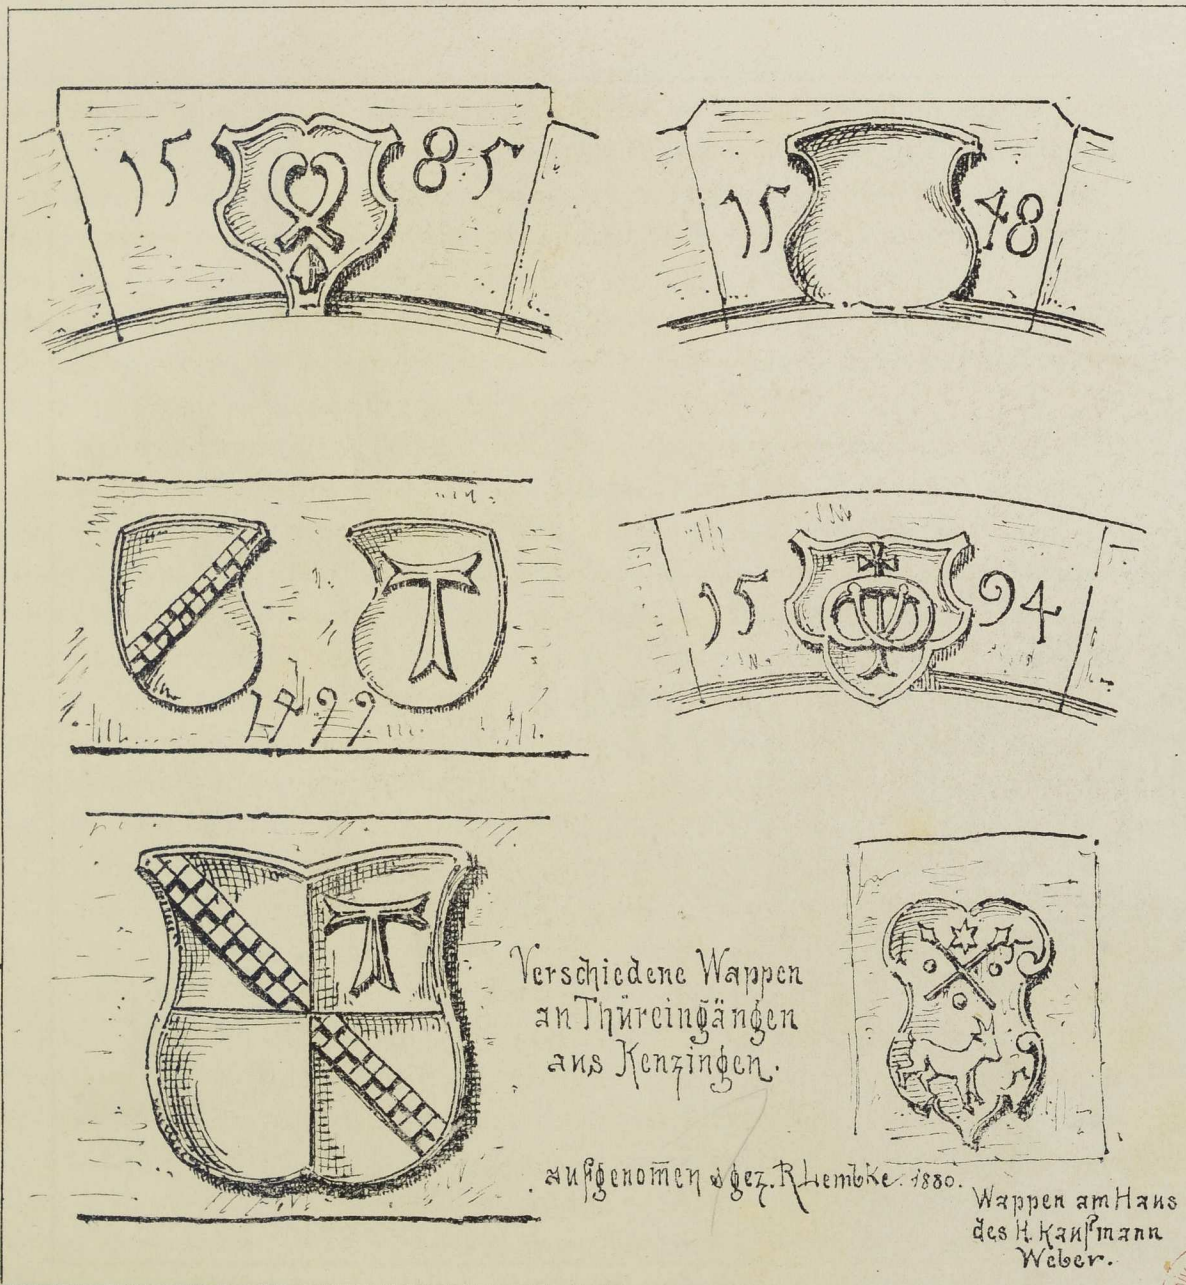 15 85
15 48
1499
15 94
Verschiedene Wappen
an Thüreingängen
aus Kenzingen.
aufgenom̄en & gez. R Lembke. 1880.
Wappen am Haus
des H. Kaufmann
Weber.